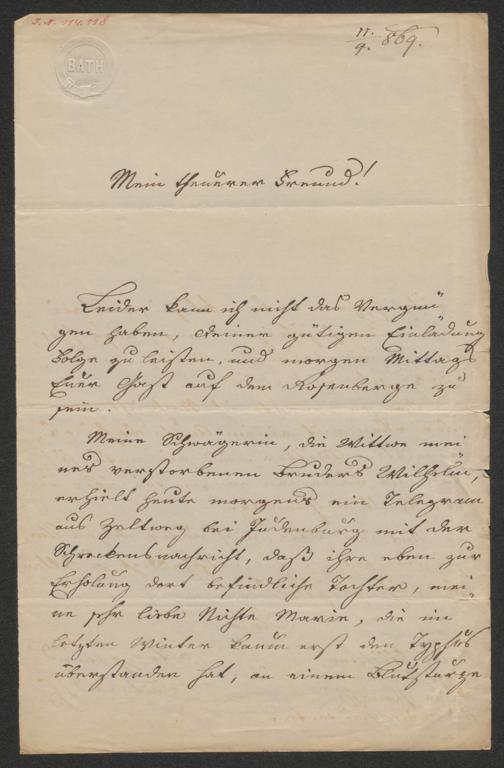 J. N. 114.118
BATH
11./9. 869.
Mein theurer Freund!
Leider kann ich nicht das Vergnü
gen haben, deiner gütigen Einladung
Folge zu leisten, und morgen Mittags
Euer Gast auf dem Rosenberge zu
sein.
Meine Schwägerin, die Wittwe mei
nes verstorbenen Bruders Wilhelm,
erhielt heute morgens ein Telegram
aus Zeltweg bei Judenburg mit der
Schreckensnachricht, daß ihre eben zur
Erholung dort befindliche Tochter, mei
ne sehr liebe Nichte Marie, die im
letzten Winter kaum erst den Typhus
überstanden hat, an einem Blutsturze